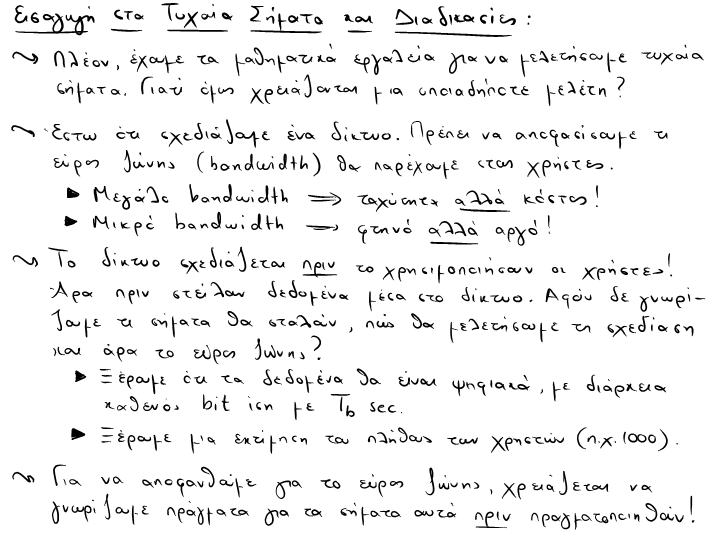 Εισαγωγή στα Τυχαία Σήματα και Διαδικασίες:
Πλέον, έχουμε τα μαθηματικά εργαλεία για να μελετήσουμε τυχαία
σήματα. Γιατί όμως χρειάζονται μια οποιαδήποτε μελέτη?
Έστω ότι σχεδιάζουμε ένα δίκτυο. Πρέπει να αποφασίσουμε τι
εύρος ζώνης (bandwidth) θα παρέχουμε στους χρήστες.
► Μεγάλο bandwidth ⟹ ταχύτητα αλλά κόστος!
► Μικρό bandwidth ⟹ φτηνό αλλά αργό!
Το δίκτυο σχεδιάζεται πριν το χρησιμοποιήσουν οι χρήστες!
Άρα πριν στείλουν δεδομένα μέσα στο δίκτυο. Αφού δε γνωρί-
ζουμε τι σήματα θα σταλούν, πώς θα μελετήσουμε τη σχεδίαση
και άρα το εύρος ζώνης?
► Ξέρουμε ότι τα δεδομένα θα είναι ψηφιακά, με διάρκεια
καθενός bit ίση με T_b sec.
► Ξέρουμε μια εκτίμηση του πλήθους των χρηστών (π.χ. 1000).
Για να αποφανθούμε για το εύρος ζώνης, χρειάζεται να
γνωρίζουμε πράγματα για τα σήματα αυτά πριν πραγματοποιηθούν!